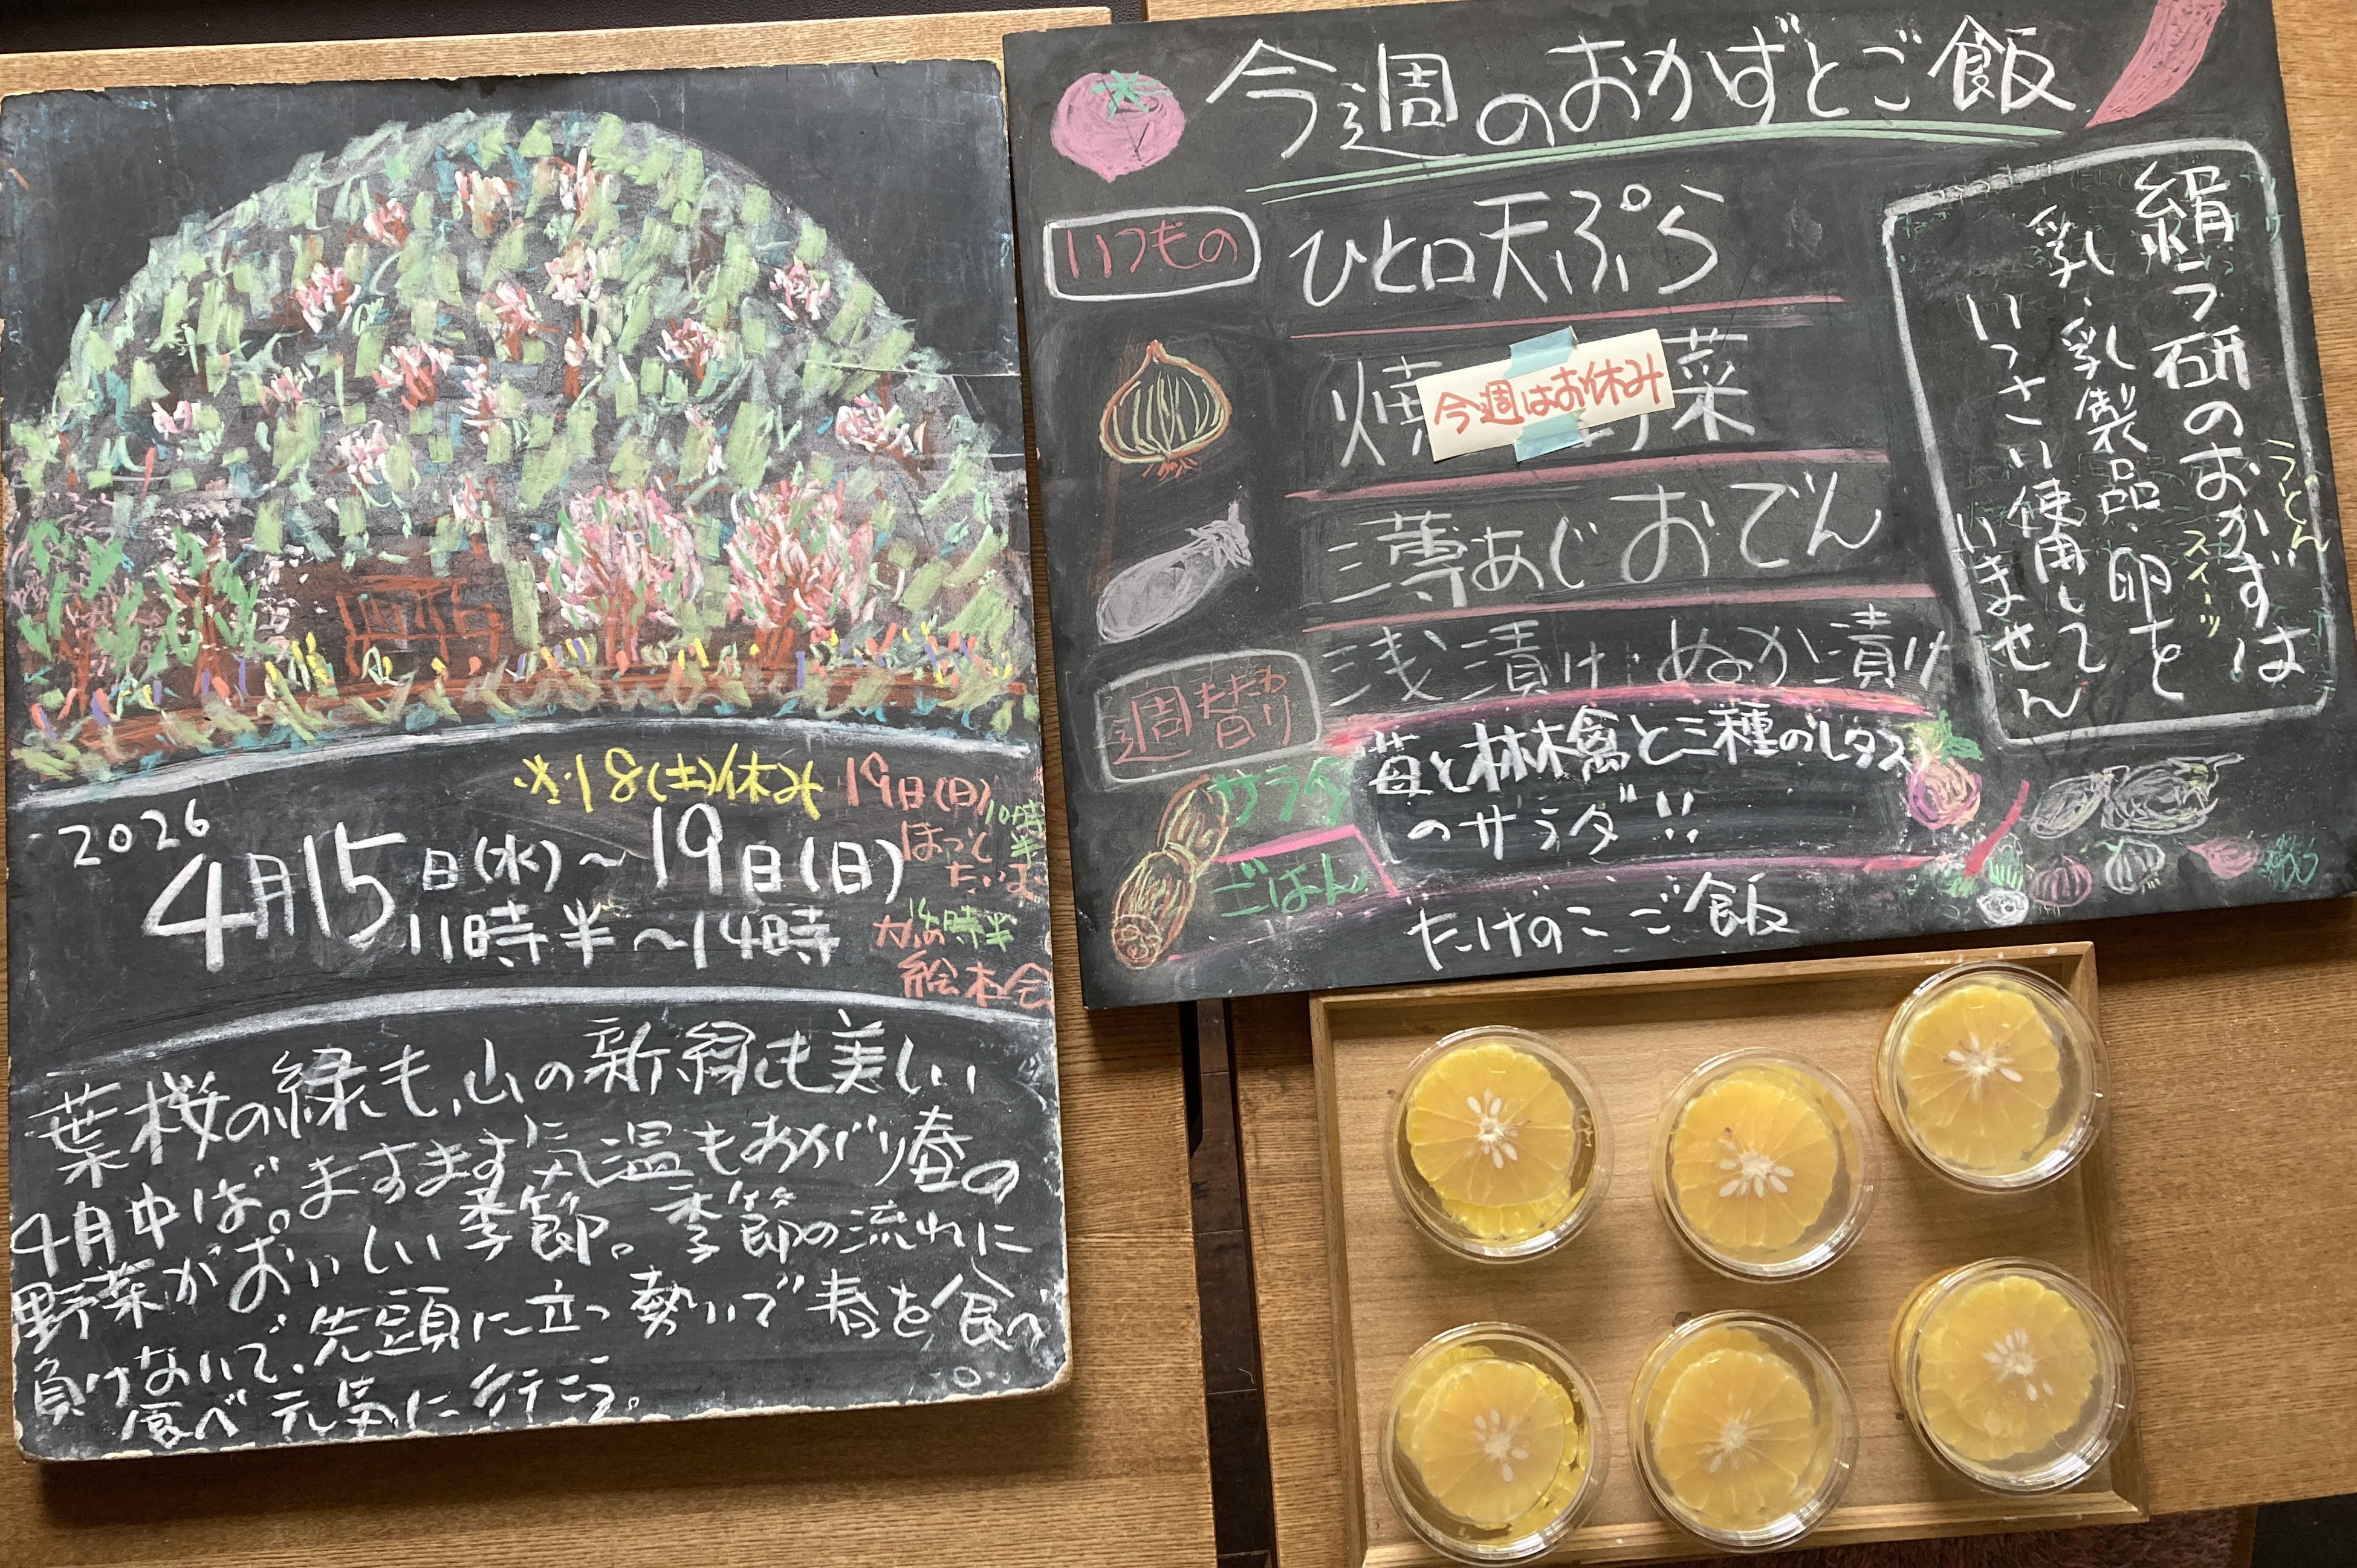 ※18(土)休み
19日(日)
10時半
ほっとたいむ
2026
4月15日(水)～19日(日)
11時半～14時
14時半
絵本会
葉桜の緑も、山の新緑も美しい
4月中ば。ますます気温もあがり庵の
野菜がおいしい季節。季節の流れに
負けないで、先頭に立つ勢いで春を食べ
食べ元気に行こう。
今週のおかずとご飯
いつもの
ひと口天ぷら
焼 菜
今週はお休み
薄あじおでん
浅漬け・ぬか漬け
週替わり
サラダ
苺と林檎と三種のレタス
のサラダ!!
ごはん
たけのこご飯
絹ラ研のおかずは
うどん
スイーツ
乳、乳製品、卵を
いっさい使用して
いません